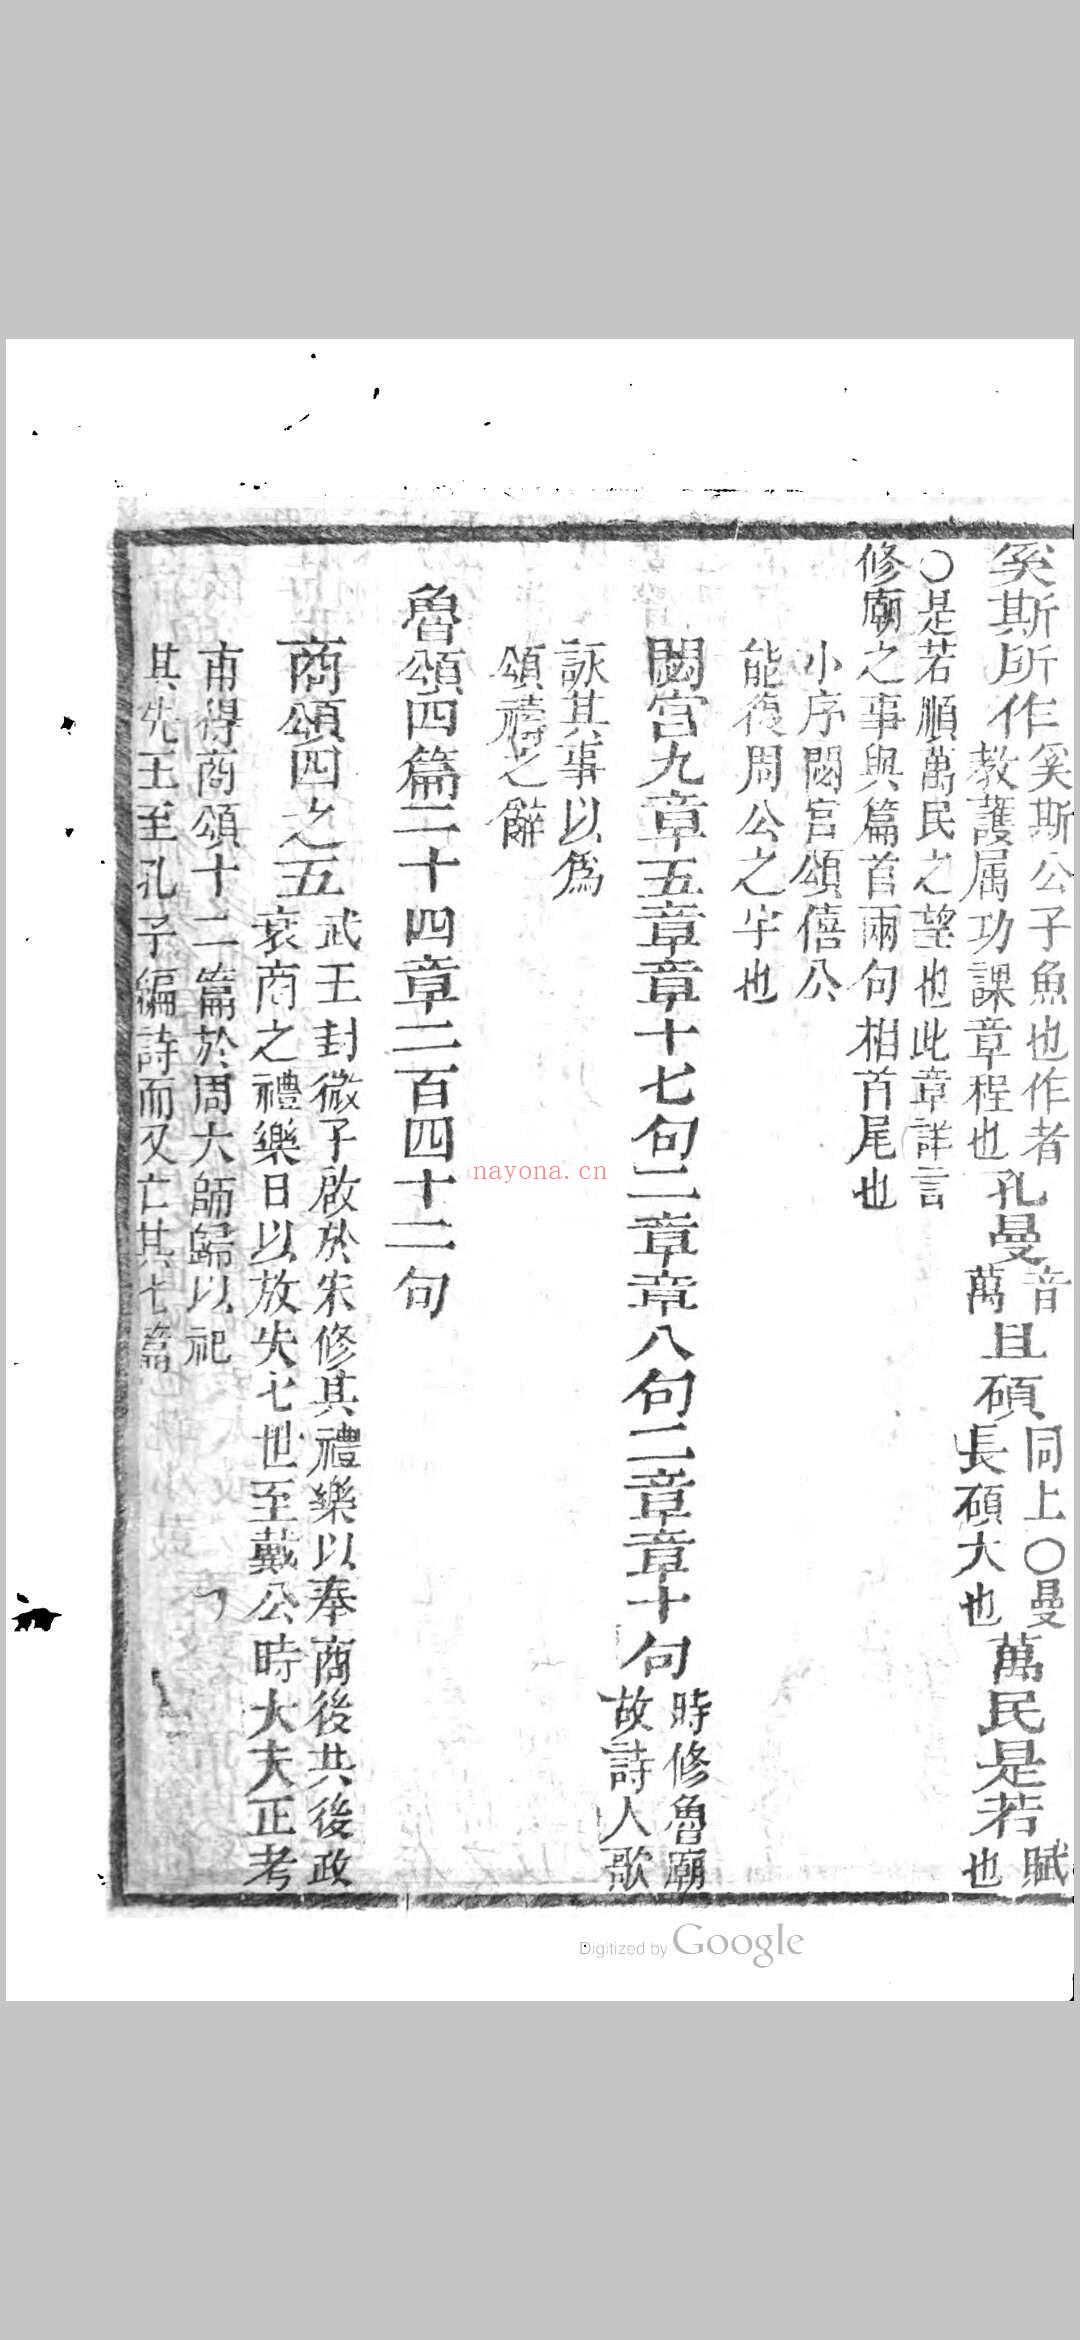 奚斯所作奚斯公子魚也作者
教護属功課章程也孔曼音
萬且碩同上○曼
長碩大也萬民是若賦
也
○是若順萬民之望也此章詳言
修廟之事與篇首兩句相首尾也
小序閟宮頌僖公
能復周公之宇也
閟宮九章五章章十七句二章章八句二章章十句時修魯廟
故詩人歌
詠其事以爲
頌禱之辭
魯頌四篇二十四章二百四十二句
商頌四之五武王封微子啟於宋修其禮樂以奉商後其後政
衰商之禮樂日以放失七世至戴公時大夫正考
甫得商頌十二篇於周大師歸以祀
其先王至孔子編詩而又亡其七篇
nayona.cn
Digitized by Google